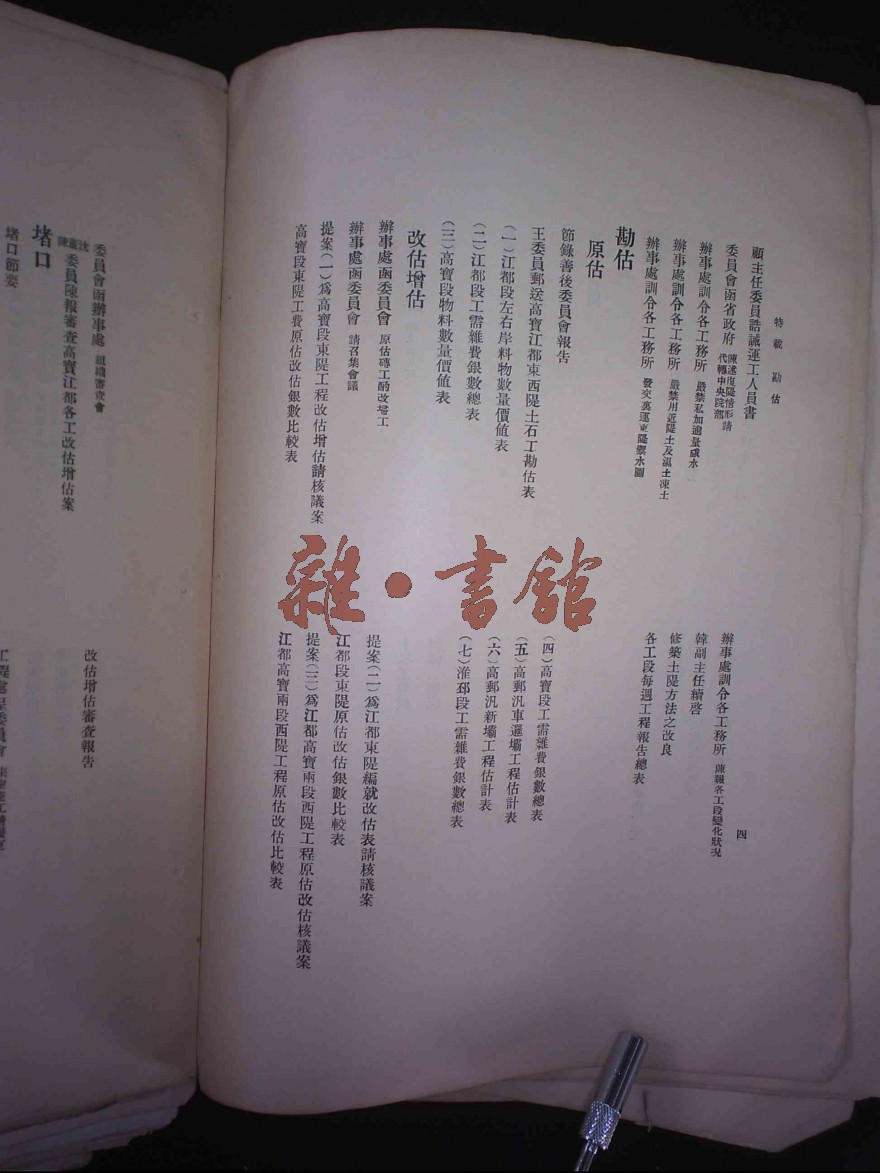 特載 勘估
四
顧主任委員誥誡運工人員書
委員會函省政府 陳述復隄情形請代轉中央院部
辦事處訓令各工務所 嚴禁私加逾量硪水
辦事處訓令各工務所 嚴禁用近隄土及濕土凍土
辦事處訓令各工務所 發交裏運東隄禦水圖
辦事處訓令各工務所 陳報各工段變化狀况
韓副主任續啓
修築土隄方法之改良
各工段每週工程報告總表
勘估
原估
節錄善後委員會報告
王委員郵送高寶江都東西隄土石工勘估表
(一)江都段左右岸料物數量價値表
(二)江都段工需雜費銀數總表
(三)高寶段物料數量價値表
(四)高寶段工需雜費銀數總表
(五)高郵汎車邏壩工程估計表
(六)高郵汎新壩工程估計表
(七)淮邳段工需雜費銀數總表
改估增估
辦事處函委員會 原估磚工酌改塔工
辦事處函委員會 請召集會議
提案(一)爲高寶段東隄工程改估增估請核議案
高寶段東隄工費原估改估銀數比較表
提案(二)爲江都東隄編就改估表請核議案
江都段東隄原估改估銀數比較表
提案(三)爲江都高寶兩段西隄工程原估改估核議案
江都高寶兩段西隄工程原估改估比較表
雜·書館
委員會函辦事處 組織審查會
沈董陳委員陳報審查高寶江都各工改估增估案
改估增估審查報告
堵口
堵口節要
工程處呈委員會